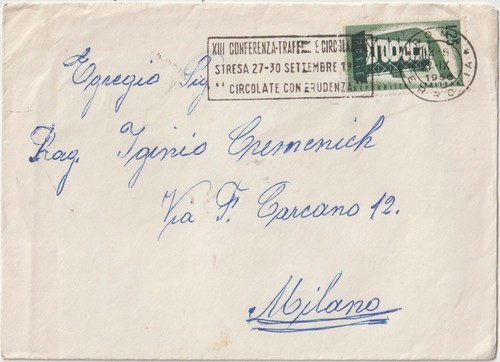 XIII CONFERENZA-TRAFFICO E CIRCOLAZ
STRESA 27-30 SETTEMBRE 19
CIRCOLATE CON PRUDENZA
EUROPA
Egregio Sig
Rag. Iginio Cremenich
Via F. Carcano 12.
Milano